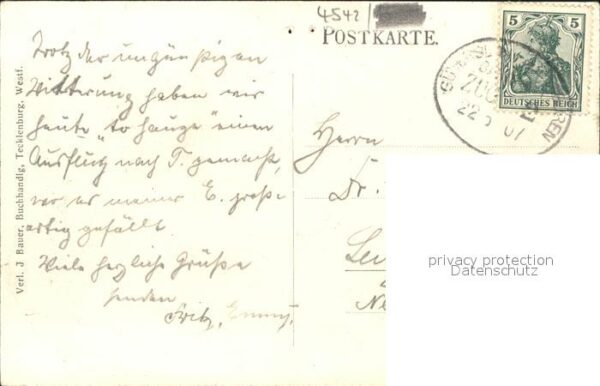 4542
POSTKARTE.
5 5
DEUTSCHES REICH
ZUG
22
07
Trotz der ungünstigen
Witterung haben wir
heute "to hause" einen
Ausflug nach T. gemacht,
wo es meiner E. groß-
artig gefällt
Viele herzliche Grüße
senden
Fritz, Emmy.
Herrn
Dr.
Verl. J Bauer, Buchhandlg, Tecklenburg, Westf.
privacy protection
Datenschutz